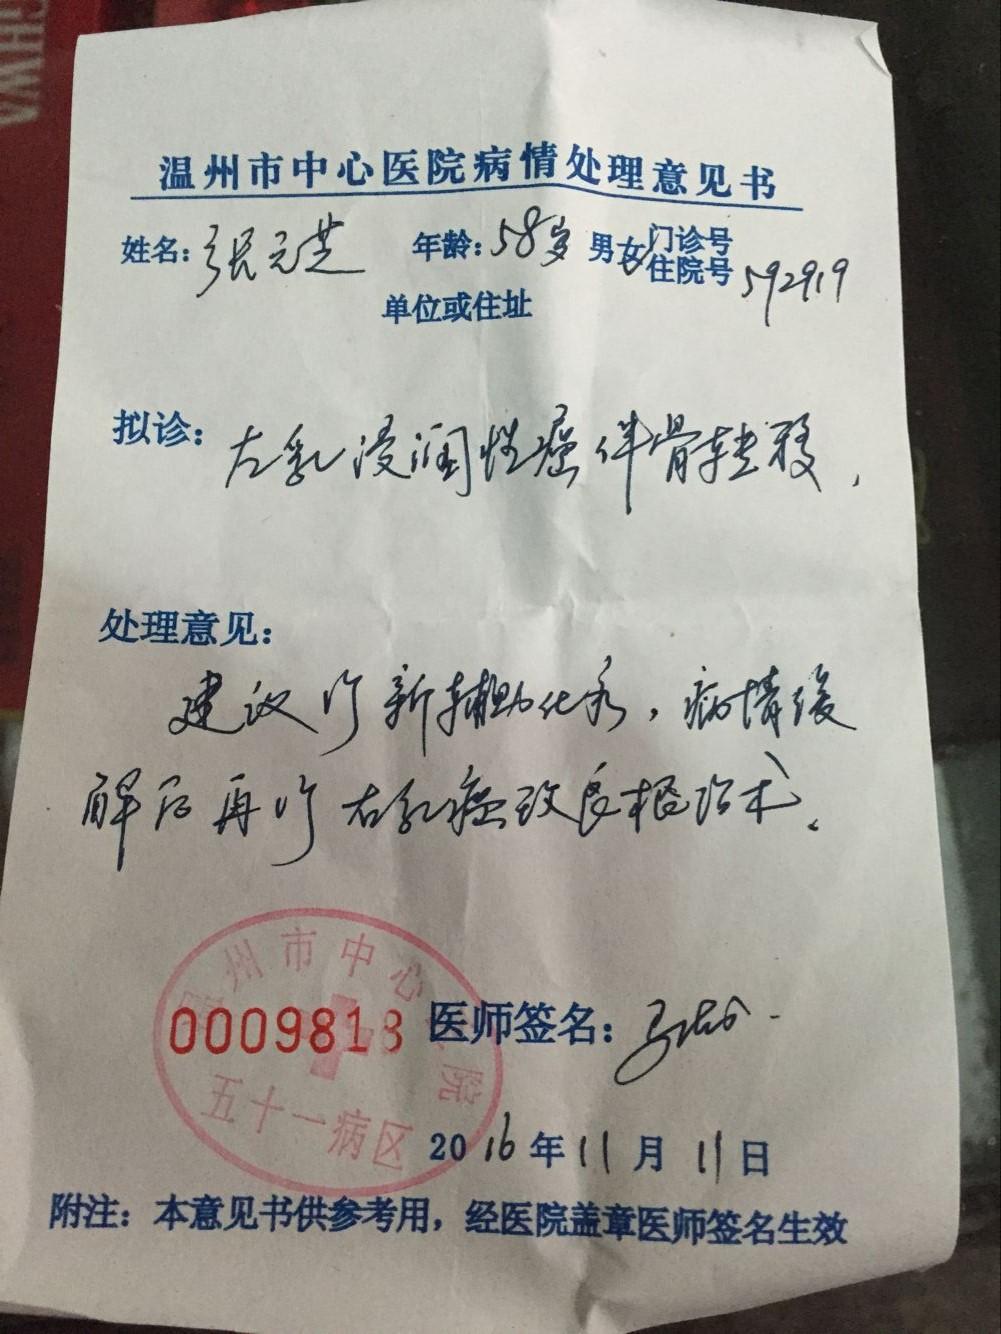 温州市中心医院病情处理意见书
姓名：张元芝 年龄：58岁 男女 门诊号 住院号 592919
单位或住址
拟诊：左乳浸润性癌伴骨转移，
处理意见：
建议行新辅助化疗，病情缓
解后再行左乳癌改良根治术。
温州市中心医院
0009818 医师签名：
五十一病区
2016年11月11日
附注：本意见书供参考用，经医院盖章医师签名生效